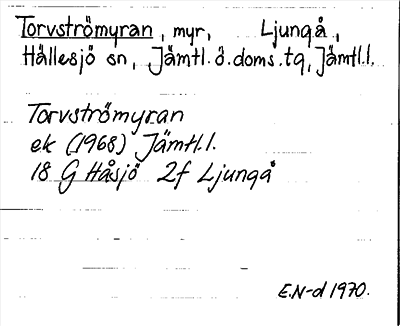 Torvströmyran, myr, Ljungå,
Hällesjö sn, Jämtl.ö.doms.tg, Jämtl.l.
Torvströmyran
ek (1968) Jämtl.l.
18 G Håsjö 2f Ljungå
E.N-d 1970.